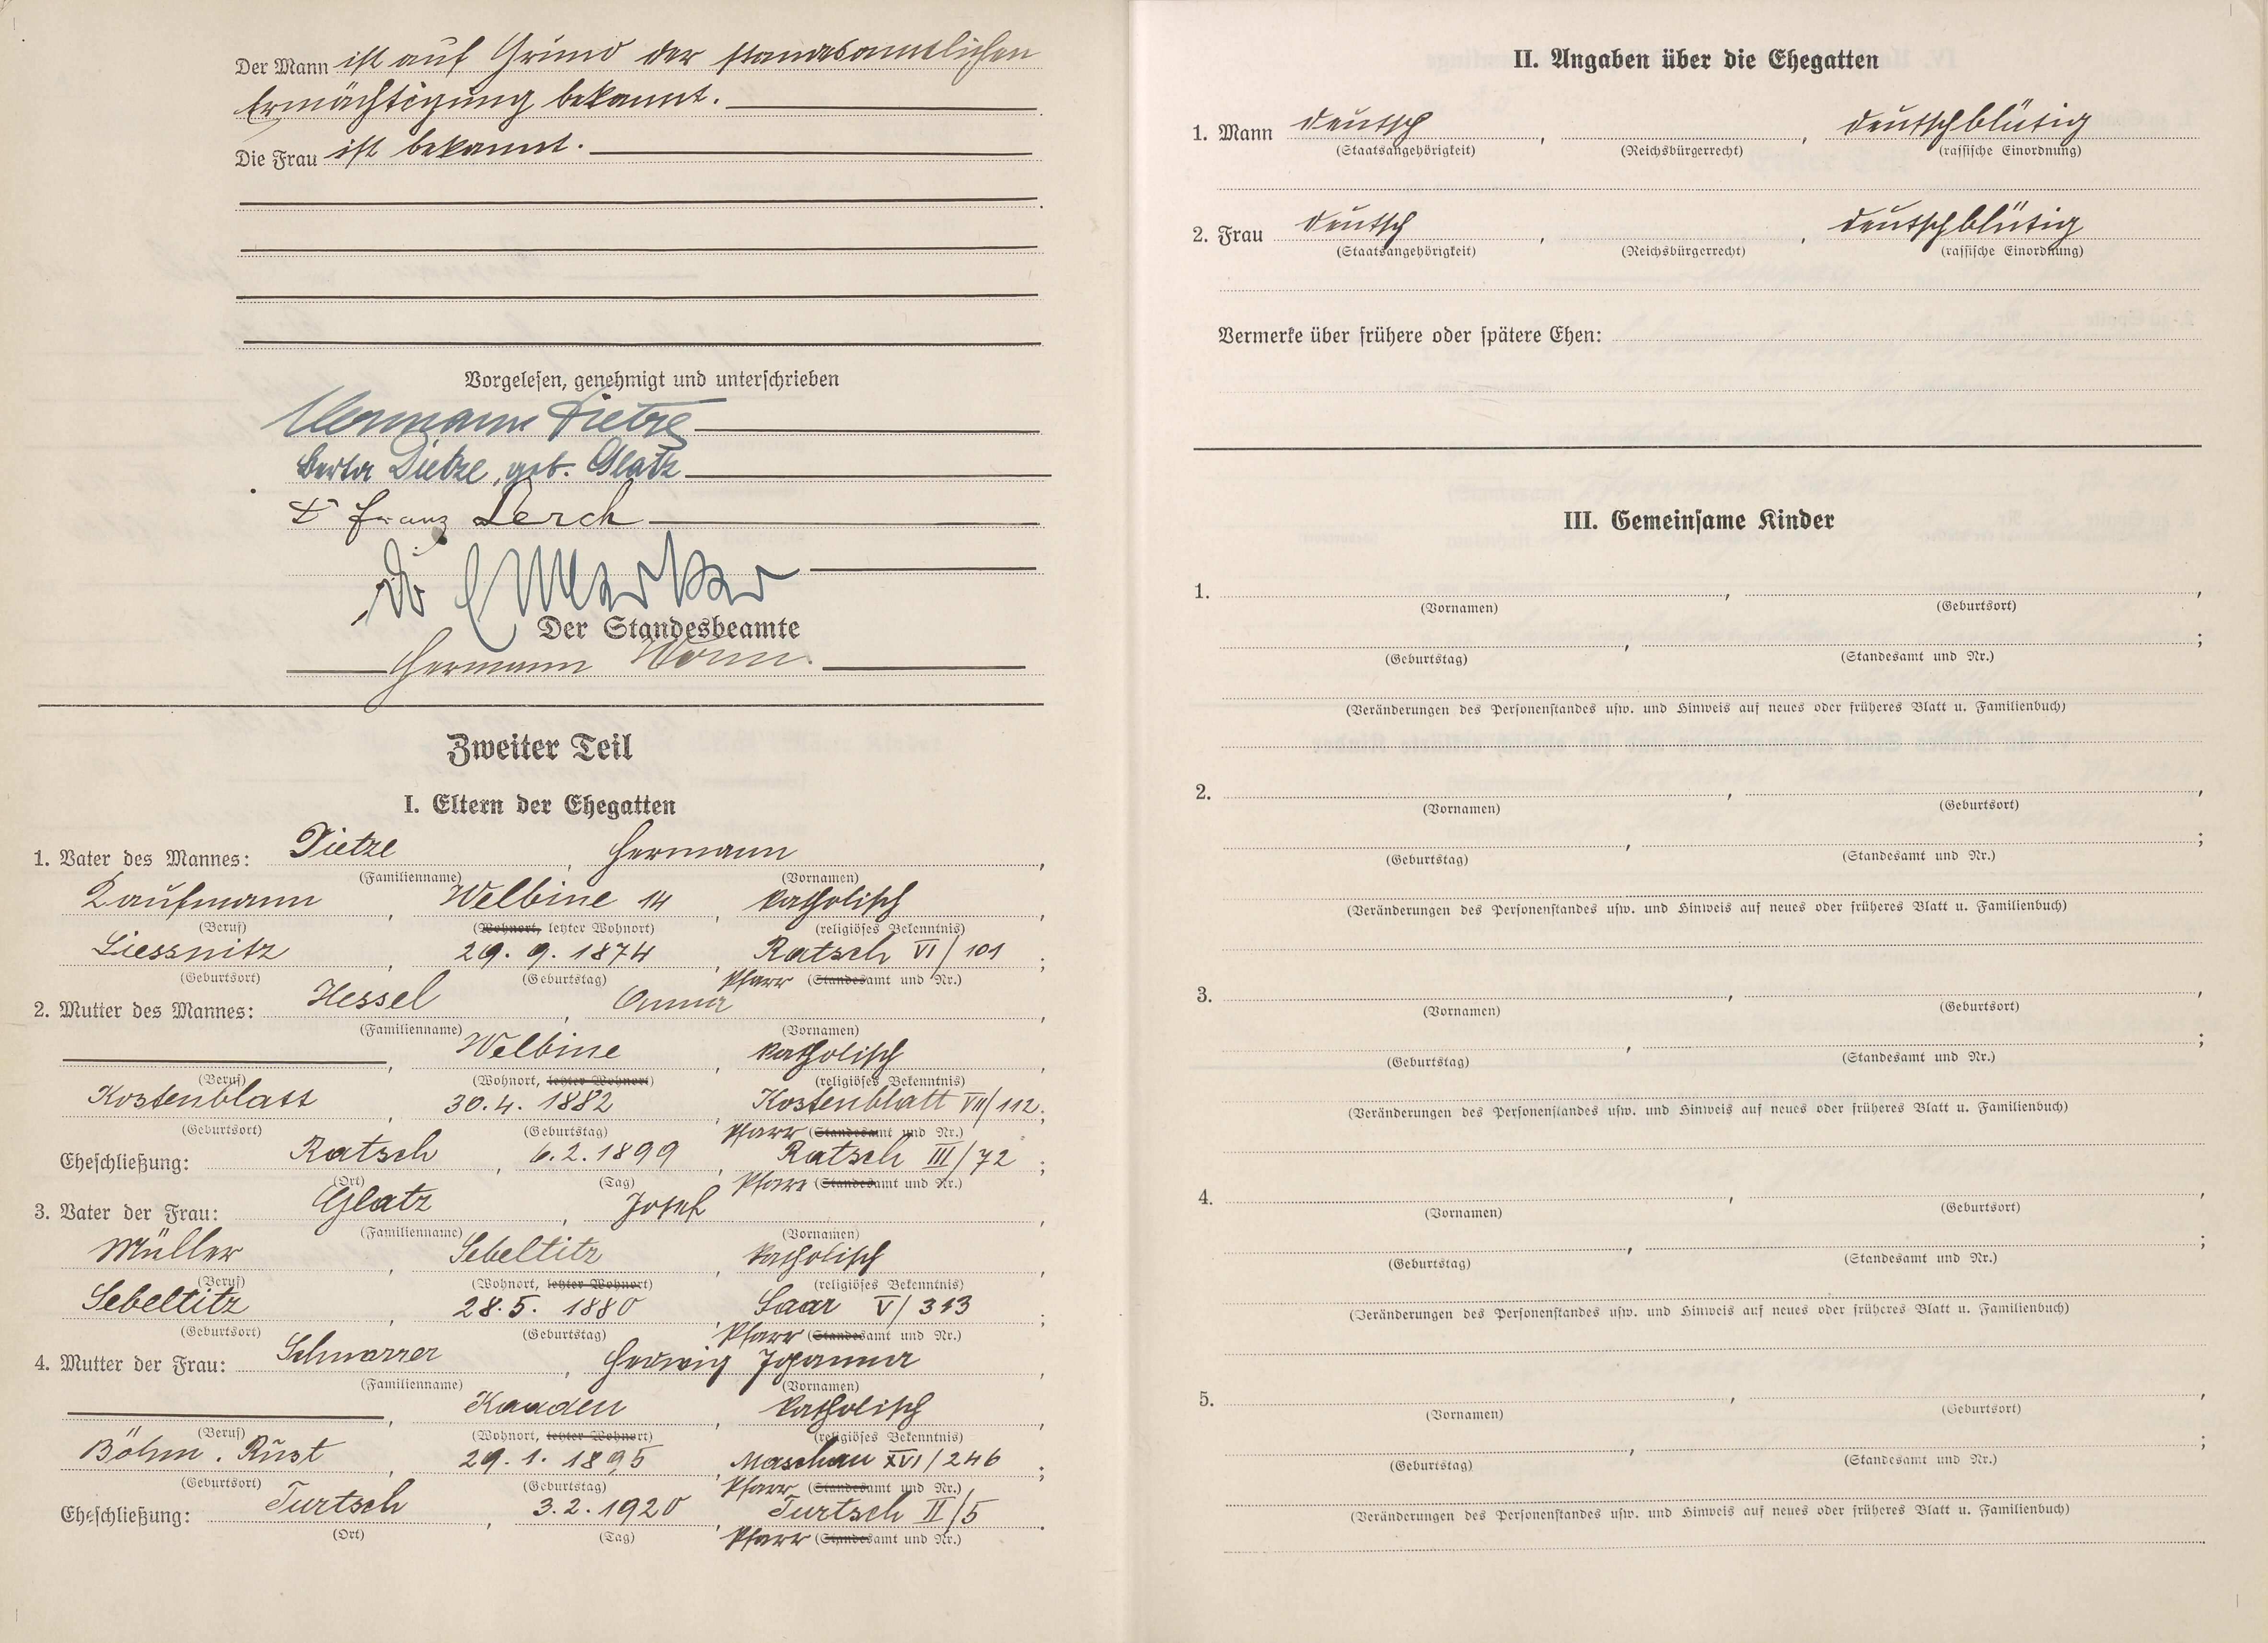 Der Mann ist auf Grund der standesamtlichen
Ermächtigung bekannt.
Die Frau ist bekannt.
Vorgelesen, genehmigt und unterschrieben
Hermann Dietze
Berta Dietze, geb. Glatz
Franz Lerch
Der Standesbeamte
Hermann
Zweiter Teil
I. Eltern der Ehegatten
1. Vater des Mannes: Dietze, Hermann,
(Familienname) (Vornamen)
Kaufmann, Welbine 14, katholisch,
(Beruf) (Wohnort, letzter Wohnort) (religiöses Bekenntnis)
Liessnitz, 29. 9. 1874, Ratsch VI/101;
(Geburtsort) (Geburtstag) Pfarr (Standesamt und Nr.)
2. Mutter des Mannes: Hessel, Anna,
(Familienname) (Vornamen)
Welbine, katholisch,
(Beruf) (Wohnort, letzter Wohnort) (religiöses Bekenntnis)
Kostenblatt, 30. 4. 1882, Kostenblatt VII/112;
(Geburtsort) (Geburtstag) Pfarr (Standesamt und Nr.)
Eheschließung: Ratsch, 6. 2. 1899, Ratsch III/72;
(Ort) (Tag) Pfarr (Standesamt und Nr.)
3. Vater der Frau: Glatz, Josef,
(Familienname) (Vornamen)
Müller, Sebeltitz, katholisch,
(Beruf) (Wohnort, letzter Wohnort) (religiöses Bekenntnis)
Sebeltitz, 28. 5. 1880, Saar V/313;
(Geburtsort) (Geburtstag) Pfarr (Standesamt und Nr.)
4. Mutter der Frau: Schnarrer, Hedwig Johanna,
(Familienname) (Vornamen)
Kaaden, katholisch,
(Beruf) (Wohnort, letzter Wohnort) (religiöses Bekenntnis)
Böhm. Rust, 29. 1. 1895, Maschau XVI/246;
(Geburtsort) (Geburtstag) Pfarr (Standesamt und Nr.)
Eheschließung: Turtsch, 3. 2. 1920, Turtsch II/5.
(Ort) (Tag) Pfarr (Standesamt und Nr.)
II. Angaben über die Ehegatten
1. Mann deutsch, , deutschblütig
(Staatsangehörigkeit) (Reichsbürgerrecht) (rassische Einordnung)
2. Frau deutsch, , deutschblütig
(Staatsangehörigkeit) (Reichsbürgerrecht) (rassische Einordnung)
Vermerke über frühere oder spätere Ehen:
III. Gemeinsame Kinder
1. , ,
(Vornamen) (Geburtsort)
, ;
(Geburtstag) (Standesamt und Nr.)
(Veränderungen des Personenstandes usw. und Hinweis auf neues oder früheres Blatt u. Familienbuch)
2. , ,
(Vornamen) (Geburtsort)
, ;
(Geburtstag) (Standesamt und Nr.)
(Veränderungen des Personenstandes usw. und Hinweis auf neues oder früheres Blatt u. Familienbuch)
3. , ,
(Vornamen) (Geburtsort)
, ;
(Geburtstag) (Standesamt und Nr.)
(Veränderungen des Personenstandes usw. und Hinweis auf neues oder früheres Blatt u. Familienbuch)
4. , ,
(Vornamen) (Geburtsort)
, ;
(Geburtstag) (Standesamt und Nr.)
(Veränderungen des Personenstandes usw. und Hinweis auf neues oder früheres Blatt u. Familienbuch)
5. , ,
(Vornamen) (Geburtsort)
, ;
(Geburtstag) (Standesamt und Nr.)
(Veränderungen des Personenstandes usw. und Hinweis auf neues oder früheres Blatt u. Familienbuch)